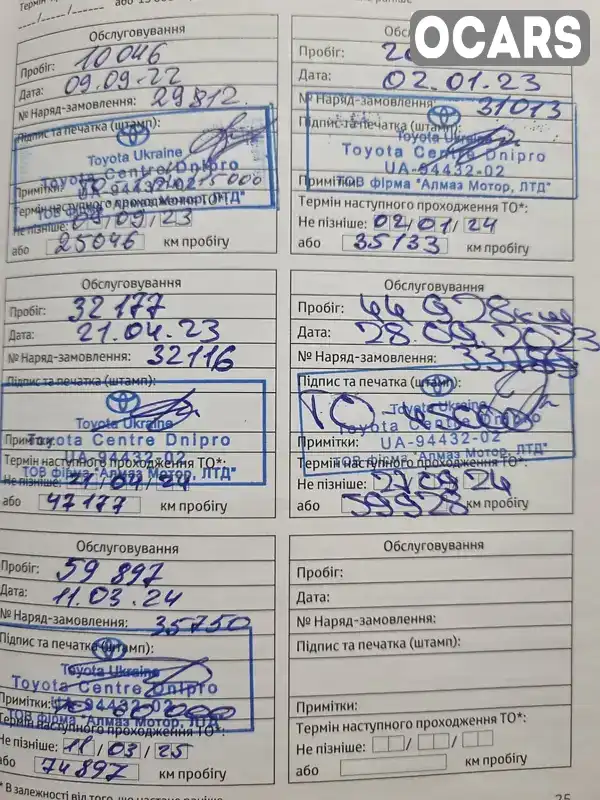 OCARS
Обслуговування
Пробіг: 10046
Дата: 09.09.22
№ Наряд-замовлення: 29812.
Підпис та печатка (штамп):
Toyota Ukraine
Toyota Centre Dnipro
UA-94432-02
Примітки: 15000
ТОВ фірма "Алмаз Мотор, ЛТД"
Термін наступного проходження ТО*:
Не пізніше: 09/09/23
або 25046 км пробігу
Пробіг:
Дата: 02.01.23
№ Наряд-замовлення: 31013
Підпис та печатка (штамп):
Toyota Ukraine
Toyota Centre Dnipro
UA-94432-02
Примітки:
ТОВ фірма "Алмаз Мотор, ЛТД"
Термін наступного проходження ТО*:
Не пізніше: 02/01/24
або 35133 км пробігу
Обслуговування
Пробіг: 32177
Дата: 21.04.23
№ Наряд-замовлення: 32116
Підпис та печатка (штамп):
Toyota Ukraine
Toyota Centre Dnipro
Примітки:
UA-94432-02
Термін наступного проходження ТО*:
ТОВ фірма "Алмаз Мотор, ЛТД"
Не пізніше: 21/04/24
або 47177 км пробігу
Обслуговування
Пробіг: 44928км
Дата: 28.09.2023
№ Наряд-замовлення:
Підпис та печатка (штамп):
Toyota Ukraine
ТО
Toyota Centre Dnipro
Примітки: UA-94432-02
ТОВ фірма "Алмаз Мотор, ЛТД"
Термін наступного проходження ТО*:
Не пізніше: 270924
або 59928 км пробігу
Обслуговування
Пробіг: 59897
Дата: 11.03.24
№ Наряд-замовлення: 35750
Підпис та печатка (штамп):
Toyota Ukraine
Toyota Centre Dnipro
UA-94432-02
Примітки: 60000
ТОВ фірма "Алмаз Мотор, ЛТД"
Термін наступного проходження ТО*:
Не пізніше: 11/03/25
або 74897 км пробігу
Обслуговування
Пробіг:
Дата:
№ Наряд-замовлення:
Підпис та печатка (штамп):
Примітки:
Термін наступного проходження ТО*:
Не пізніше: / /
або км пробігу
* В залежності від того, що настане раніше
25